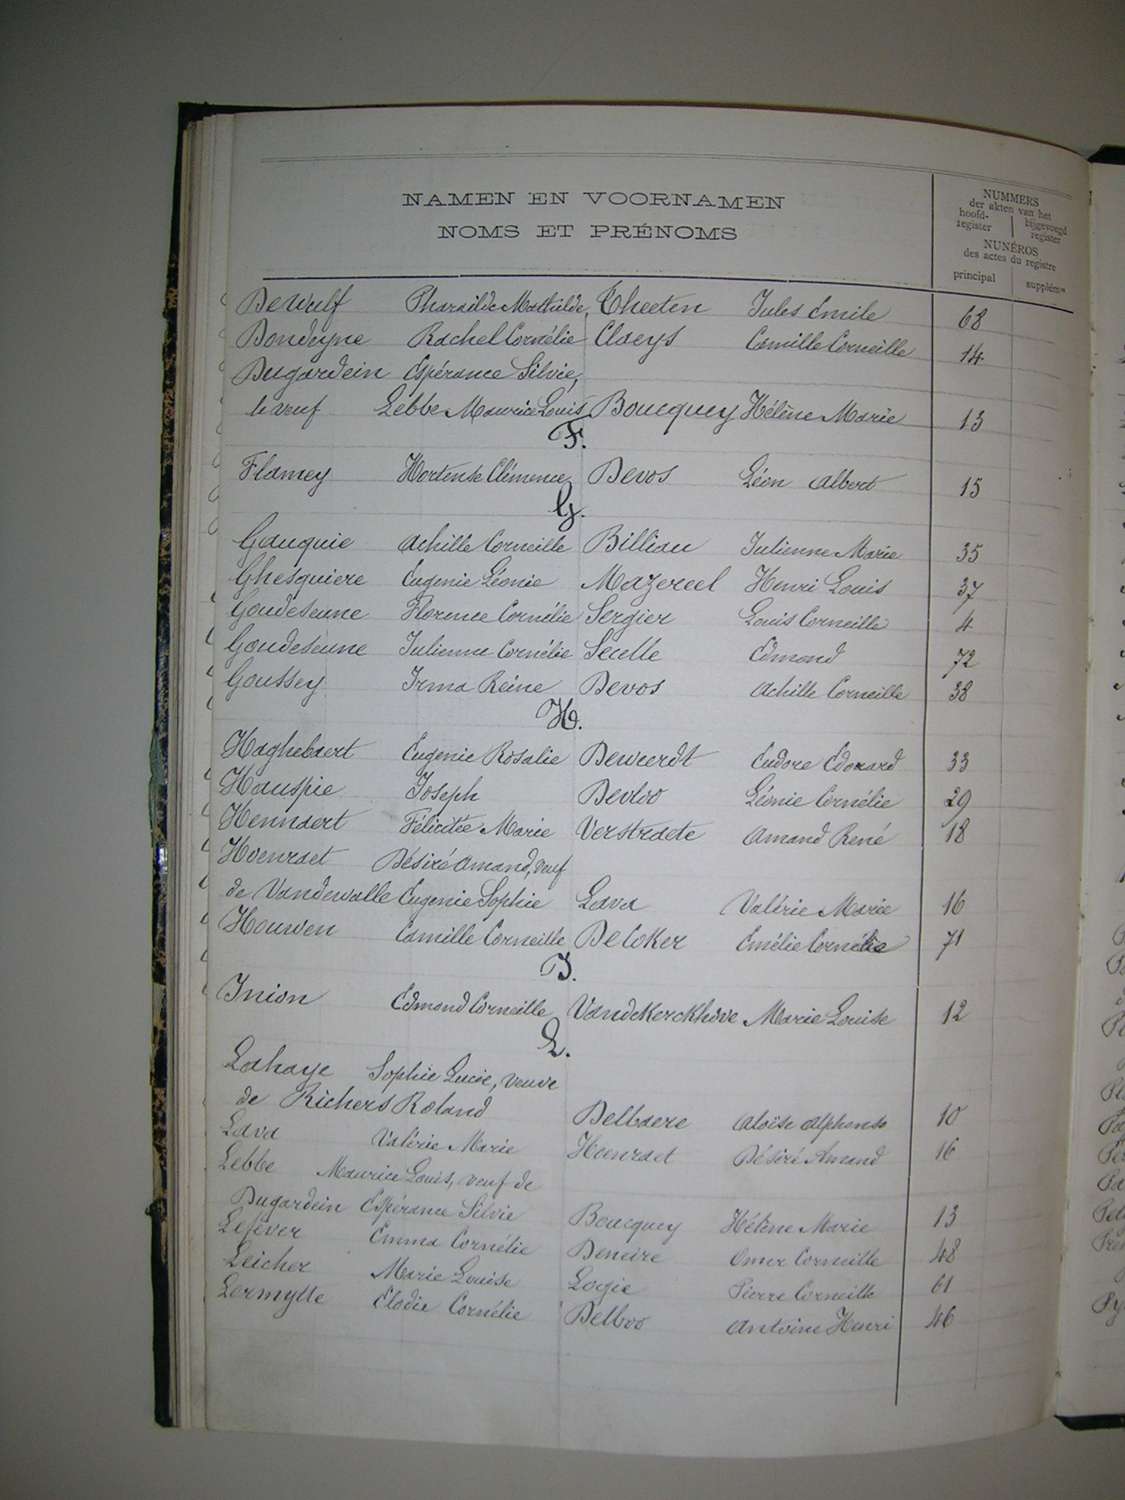 NAMEN EN VOORNAMEN
NOMS ET PRÉNOMS
NUMMERS
der akten van het
hoofd-register bijgevoegd register
NUNÉROS
des actes du registre
principal supplémre
Dewulf Pharaïlde Mathilde, Theeten Jules Emile 68
Dondeyne Rachel Cornélie Claeys Camille Corneille 14
Dugardein Espérance Silvie,
le veuf Lebbe Maurice Louis Boucquey Hélène Marie 13
F.
Flamey Hortense Clémence Devos Léon Albert 15
G.
Gauquie Achille Corneille Billiau Julienne Marie 35
Ghesquiere Eugenie Léonie Mazereel Henri Louis 37
Goudeseune Florence Cornélie Sergier Louis Corneille 4
Goudeseune Julienne Cornélie Edmond 72
Goussey Irma Reine Devos Achille Corneille 38
H.
Haghebaert Eugenie Rosalie Deweerdt Eudore Edouard 33
Hauspie Joseph Devloo Léonie Cornélie 29
Hennaert Félicitée Marie Verstraete Amand René 18
Hoenraet Désiré Amand, veuf
de Vandewalle Eugenie Sophie Lava Valérie Marie 16
Houwen Camille Corneille DeCoker Emélie Cornélie 71
I.
Inion Edmond Corneille Vandekerckhove Marie Louise 12
L.
Lahaye Sophie Lucie, veuve
de Richers Roland Delbaere Aloïse Alphonse 10
Lava Valérie Marie Hoenraet Désiré Amand 16
Lebbe Maurice Louis, veuf de
Dugardein Espérance Silvie Boucquey Hélène Marie 13
Lefever Emma Cornélie Deneire Omer Corneille 48
Leicher Marie Louise Logie Pierre Corneille 61
Lermytte Elodie Cornélie Delboo Antoine Henri 46